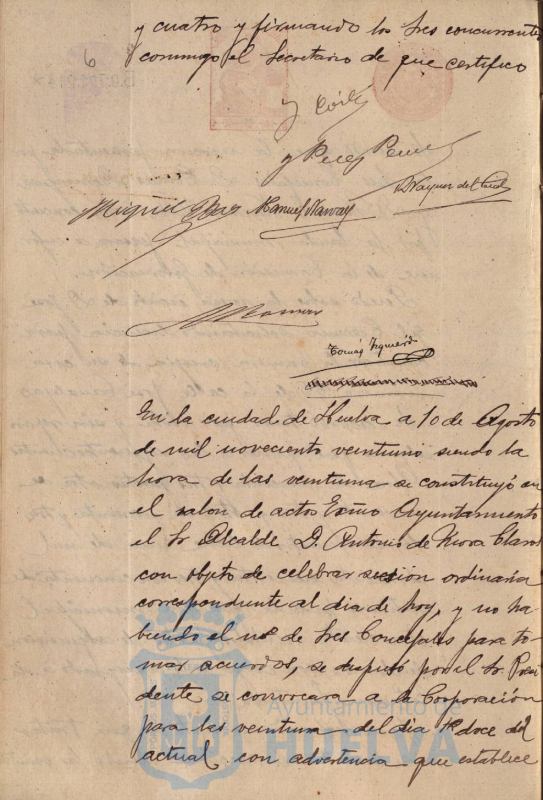 y cuatro y firmando los Sres concurrentes
conmigo el Secretario de que certifico
6
y Cort
y Perez
Miguel
Manuel Narvaez
Tomás Izquierdo
En la ciudad de Huelva a 10 de Agosto
de mil novecientos veintiuno siendo la
hora de las veintiuna se constituyó en
el salon de actos Exmo Ayuntamiento
el Sr Alcalde D. Antonio de Mora Claros
con objeto de celebrar sesión ordinaria
correspondiente al dia de hoy, y no ha-
biendo el nº de Sres Concejales para to-
mar acuerdos, se dispuso por el Sr. Presi
dente se convocara a la Corporación
para las veintiuna del dia doce del
actual con advertencia que establece
Ayuntamiento de
HUELVA